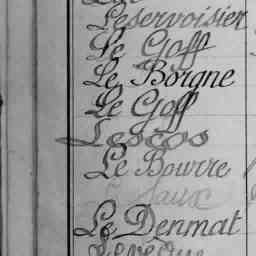 Leservoisier
Le Goff
Le Borgne
Le Goff
Lescos
Le Bourre
Le Denmat
Levêque